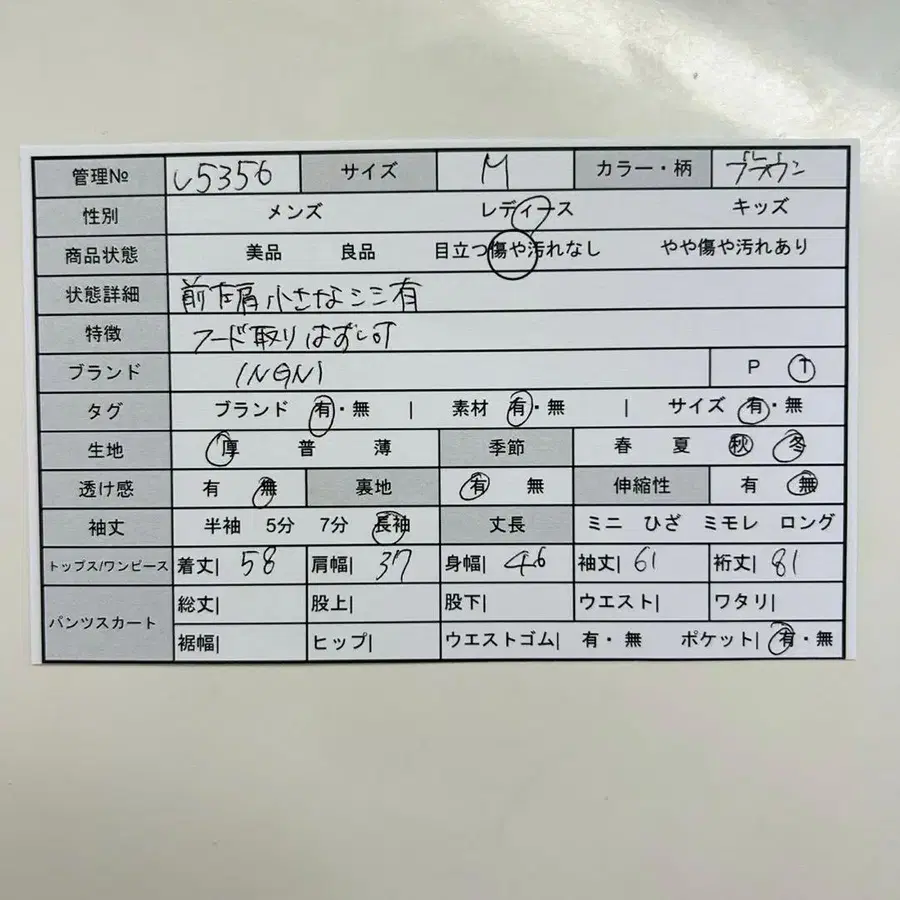 管理№ し5356 サイズ M カラー・柄 ブラウン
性別 メンズ レディース キッズ
商品状態 美品 良品 目立つ傷や汚れなし やや傷や汚れあり
状態詳細 前左肩小さなシミ有
特徴 フード取りはずし可
ブランド INGNI P T
タグ ブランド 有・無 | 素材 有・無 | サイズ 有・無
生地 厚 普 薄 季節 春 夏 秋 冬
透け感 有 無 裏地 有 無 伸縮性 有 無
袖丈 半袖 5分 7分 長袖 丈長 ミニ ひざ ミモレ ロング
トップス/ワンピース 着丈| 58 肩幅| 37 身幅| 46 袖丈| 61 裄丈| 81
パンツスカート 総丈| 股上| 股下| ウエスト| ワタリ|
裾幅| ヒップ| ウエストゴム| 有・無 ポケット| 有・無